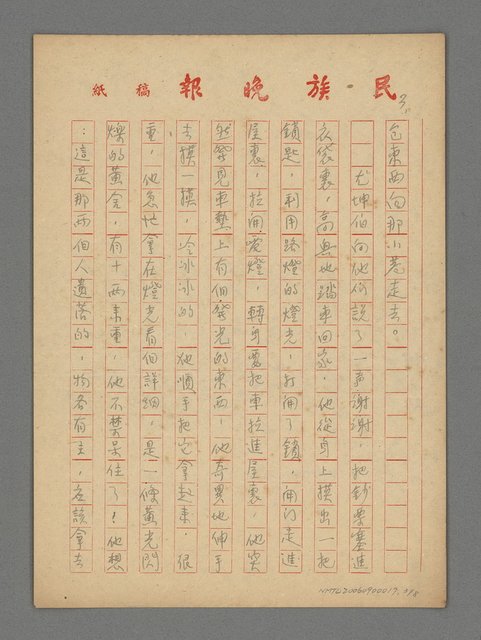 民族晚報 稿紙
3.
包東西向那小巷走去。
尤坤伯向他們說了一声謝謝，把鈔票塞進
衣袋裏，高興地踏車回家，他從身上摸出一把
鎖匙，利用路燈的燈光，打開了鎖，開门走進
屋裏，拉開電燈，轉身要把車拉進屋裏，他突
然發見車墊上有個發光的東西，他奇異地伸手
去摸一摸，冷冰冰的，他順手把它拿起來，很
重，他急忙拿在燈光看個詳細，是一條黃光閃
爍的黃金，有十兩來重，他不禁呆住了！他想
：這是那兩個人遺落的，物各有主，应該拿去
NMTL20060900017. 3/8